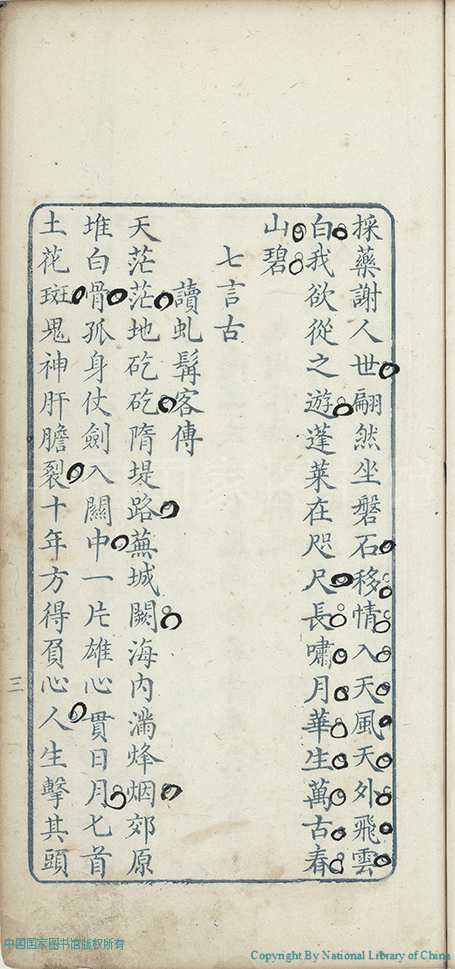 採藥謝人世翩然坐磐石移情入天風天外飛雲
白我欲從之遊蓬萊在咫尺長嘯月華生萬古春
山碧
七言古
讀虬髯客傳
天茫茫地矻矻隋堤路蕪城闕海内滿烽烟郊原
堆白骨孤身仗劍入關中一片雄心貫日月七首
土花斑鬼神肝膽裂十年方得負心人生擊其頭
三
中國国家图书馆版权所有
Copyright By National Library of China